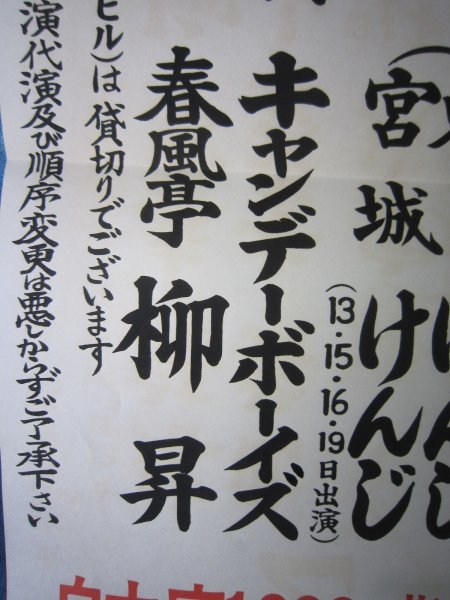 けんじ
(宮城けんじ
(13・15・16・19日出演)
キャンデーボーイズ
春風亭柳昇
ヒル)は貸切りでございます
演代演及び順序変更は悪しからずご了承下さい